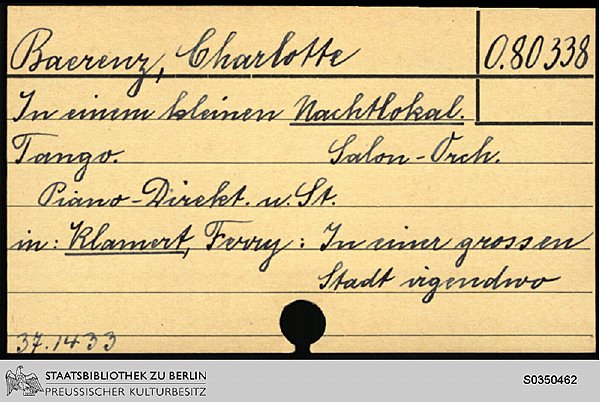 Baerenz, Charlotte
O.80338
In einem kleinen Nachtlokal.
Tango. Salon-Orch.
Piano-Direkt. u. St.
in: Klamert, Ferry: In einer grossen
Stadt irgendwo
37.1433
STAATSBIBLIOTHEK ZU BERLIN
PREUSSISCHER KULTURBESITZ
S0350462